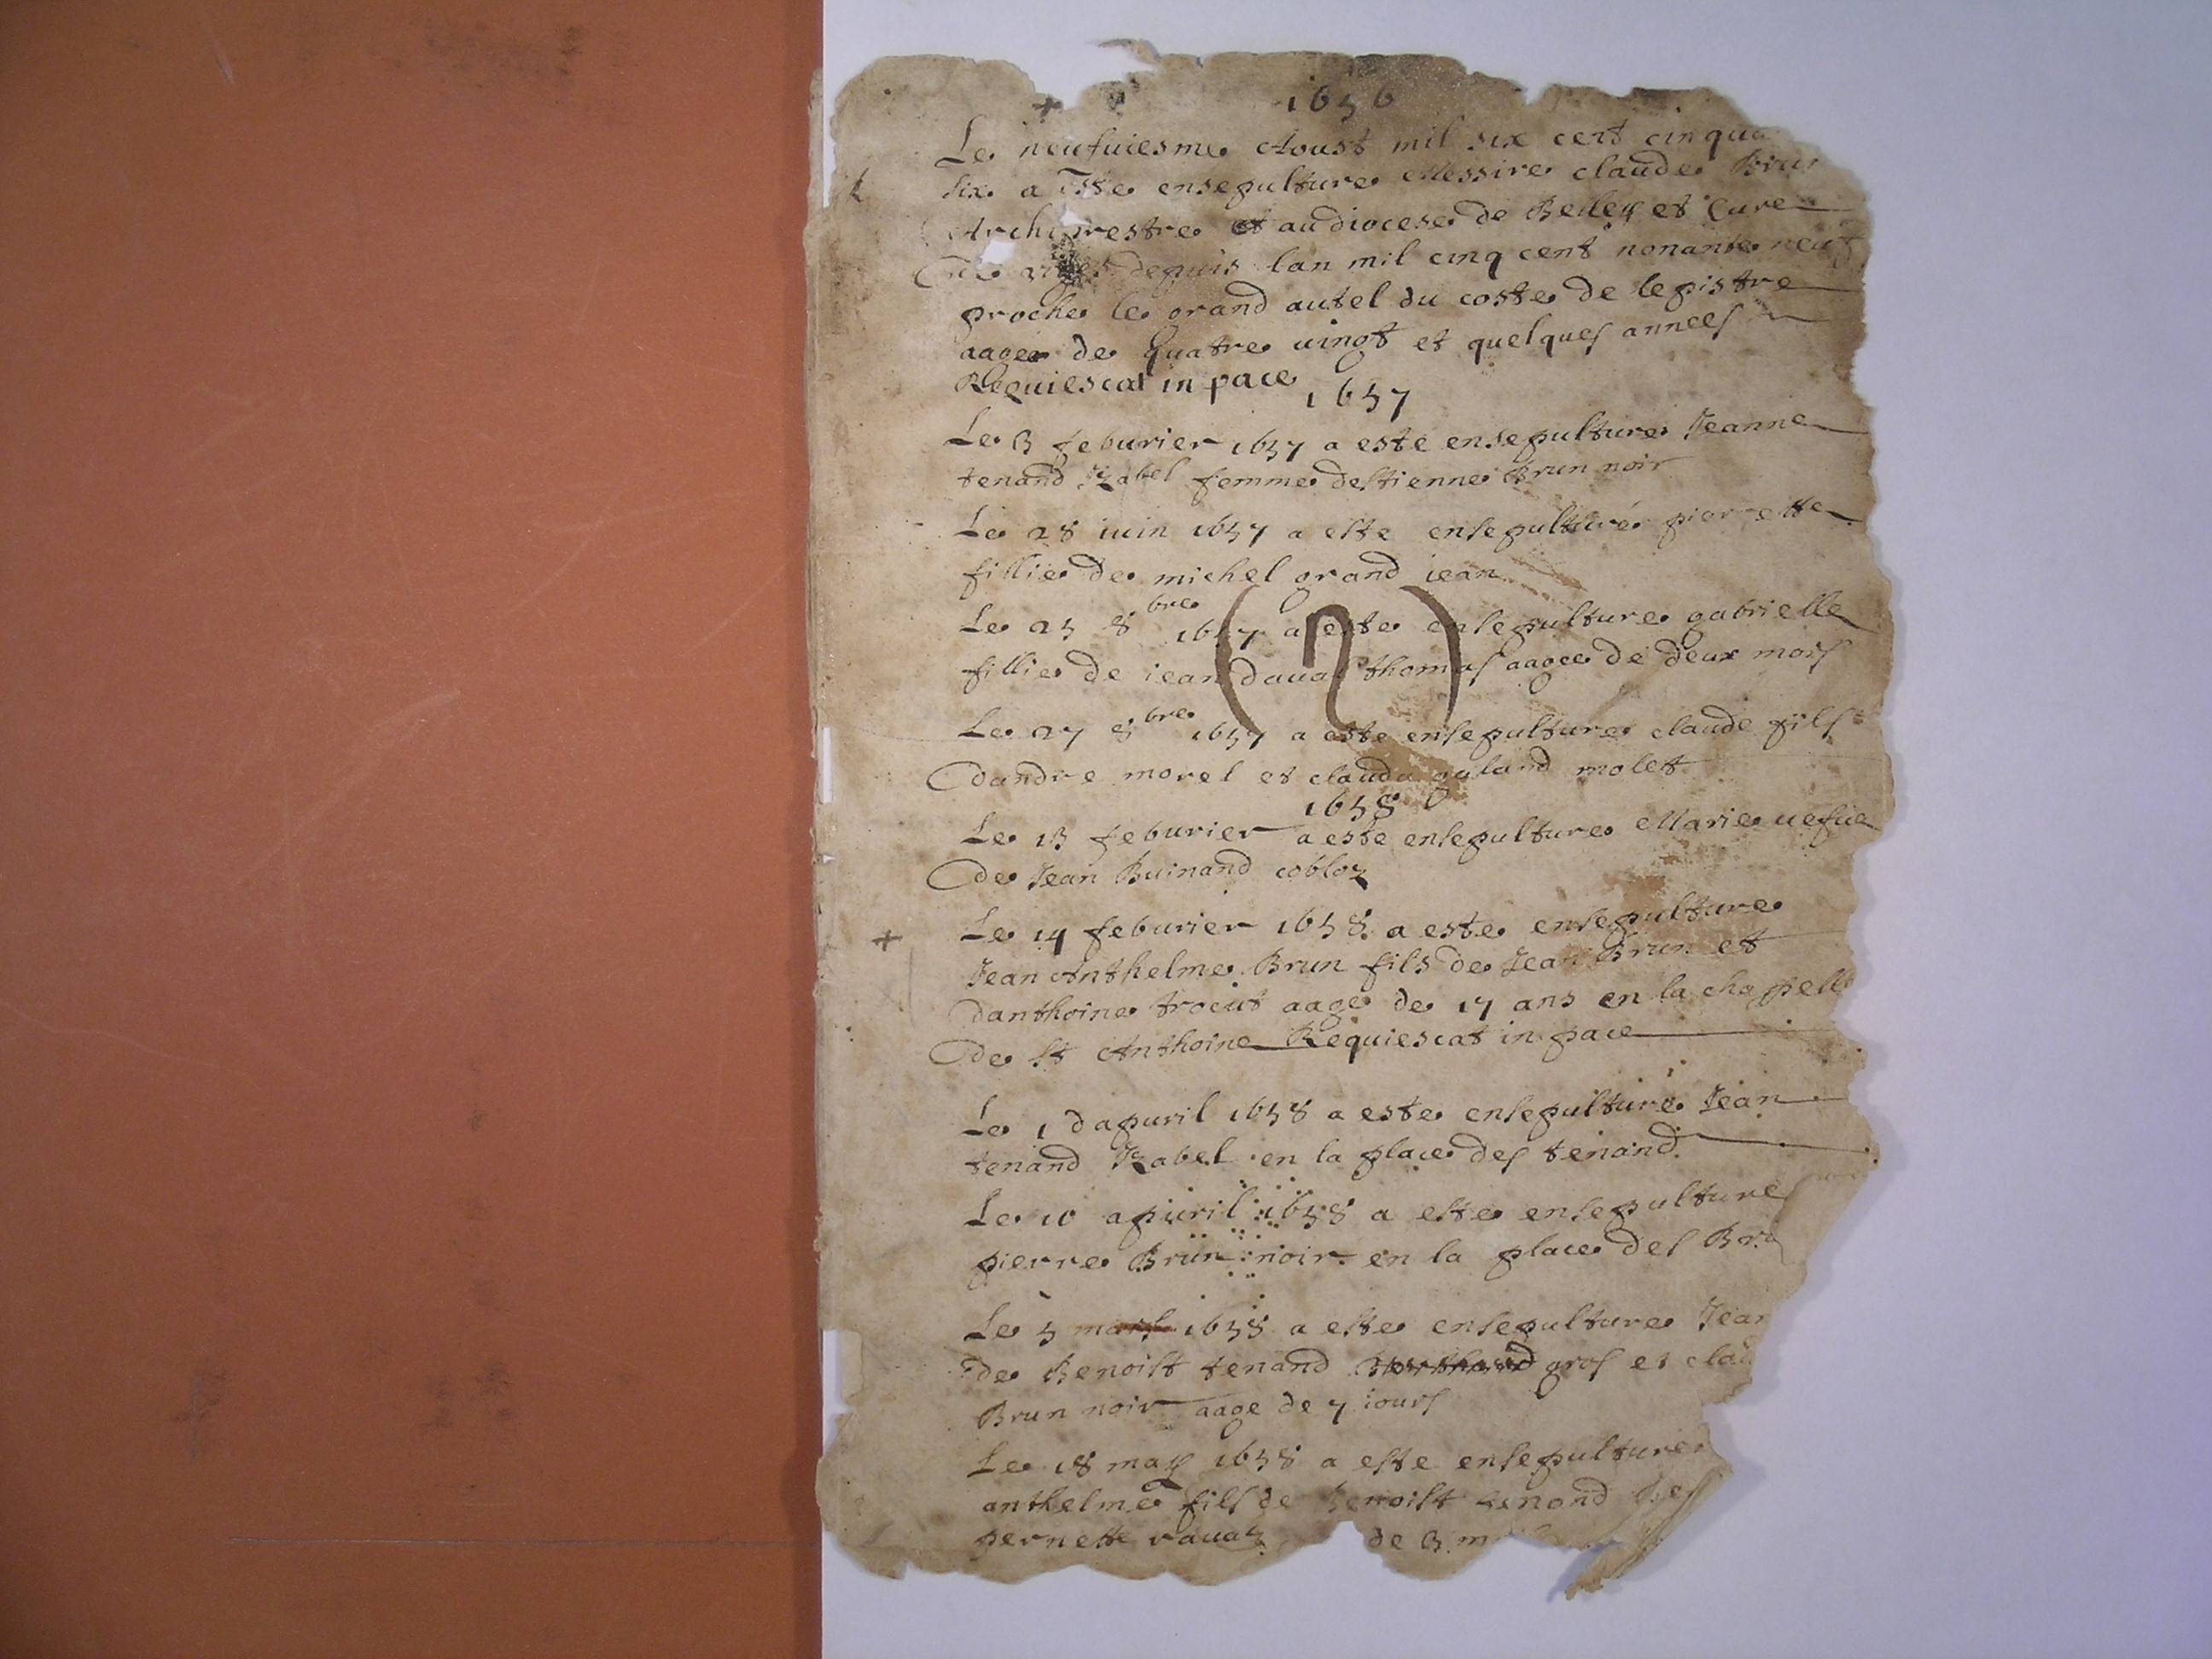 1656
Le neufuiesme Aoust mil six cent cinqua
six a este ensepulture Messire claude Brun
Archiprestre et au diocese de Belley et Cure
depuis lan mil cinq cent nonante neuf
proche le grand autel du coste de lepistre
aage de quatre uingt et quelques annees
Requiescat in pace
1657
Le 3 feburier 1657 a este ensepulture Jeanne
tenand Izabel femme destienne Brun noir
Le 28 iuin 1657 a este ensepulturé pierrette
fillie de michel grand iean
Le 25 8bre 1657 a este ensepulture gabrielle
fillie de iean dauat thomas aagee de deux mois
(2)
Le 27 8bre 1657 a este ensepulture claude fils
dandre morel et clauda galand molet
1658
Le 13 feburier a este ensepulture Marie uefue
de Jean Buinand cobloz
Le 14 feburier 1658 a este ensepulture
Jean Anthelme Brun fils de Jean Brun et
danthoine trocut aage de 17 ans en la chapelle
de st Anthoine Requiescat in pace
Le 1 dapuril 1658 a este ensepulture Jean
tenand Izabel en la place des tenand
Le 10 apuril 1658 a este ensepulture
pierre Brun noir en la place des Bru
Le 5 mars 1658 a este ensepulture Jean
de Benoist tenand gros et clau
Brun noir aage de 7 iours
Le 18 may 1658 a este ensepulture
anthelme fils de benoist tenand
pernette rauaz de 3 m